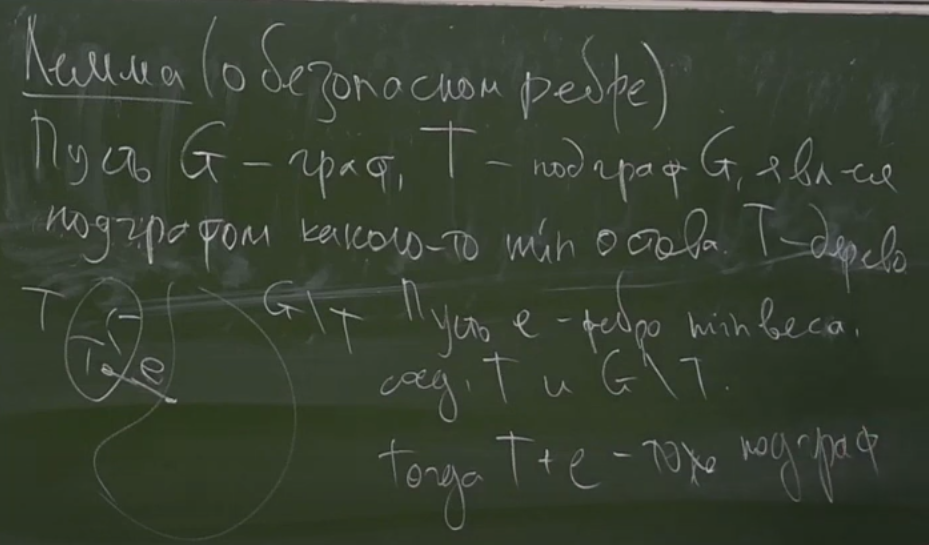 Лемма (о безопасном ребре)
Пусть G – граф, T – подграф G, явл-ся
подграфом какого-то min остова. T – дерево
T G\T Пусть e – ребро min веса,
T e соед. T и G\T.
тогда T+e – тоже подграф